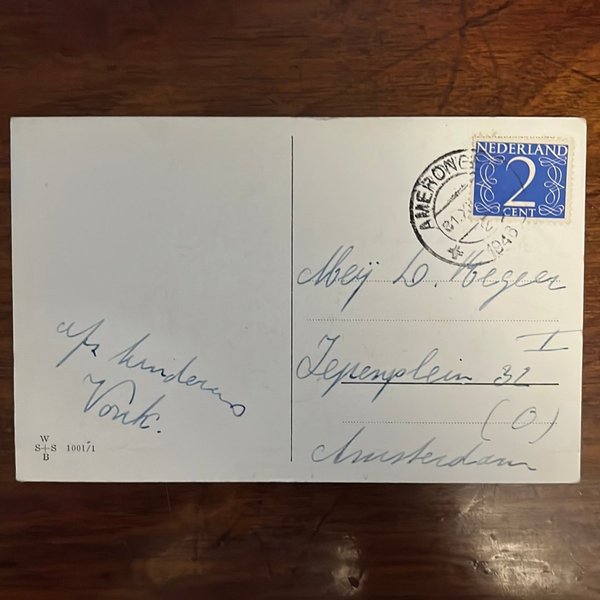 NEDERLAND
2
CENT
AMERONG
31.XII
1946
Mej D. Meger
I
Iepenplein 32
(O)
Amsterdam
afz kinderen
Vonk.
W
S+S
B
1001/1